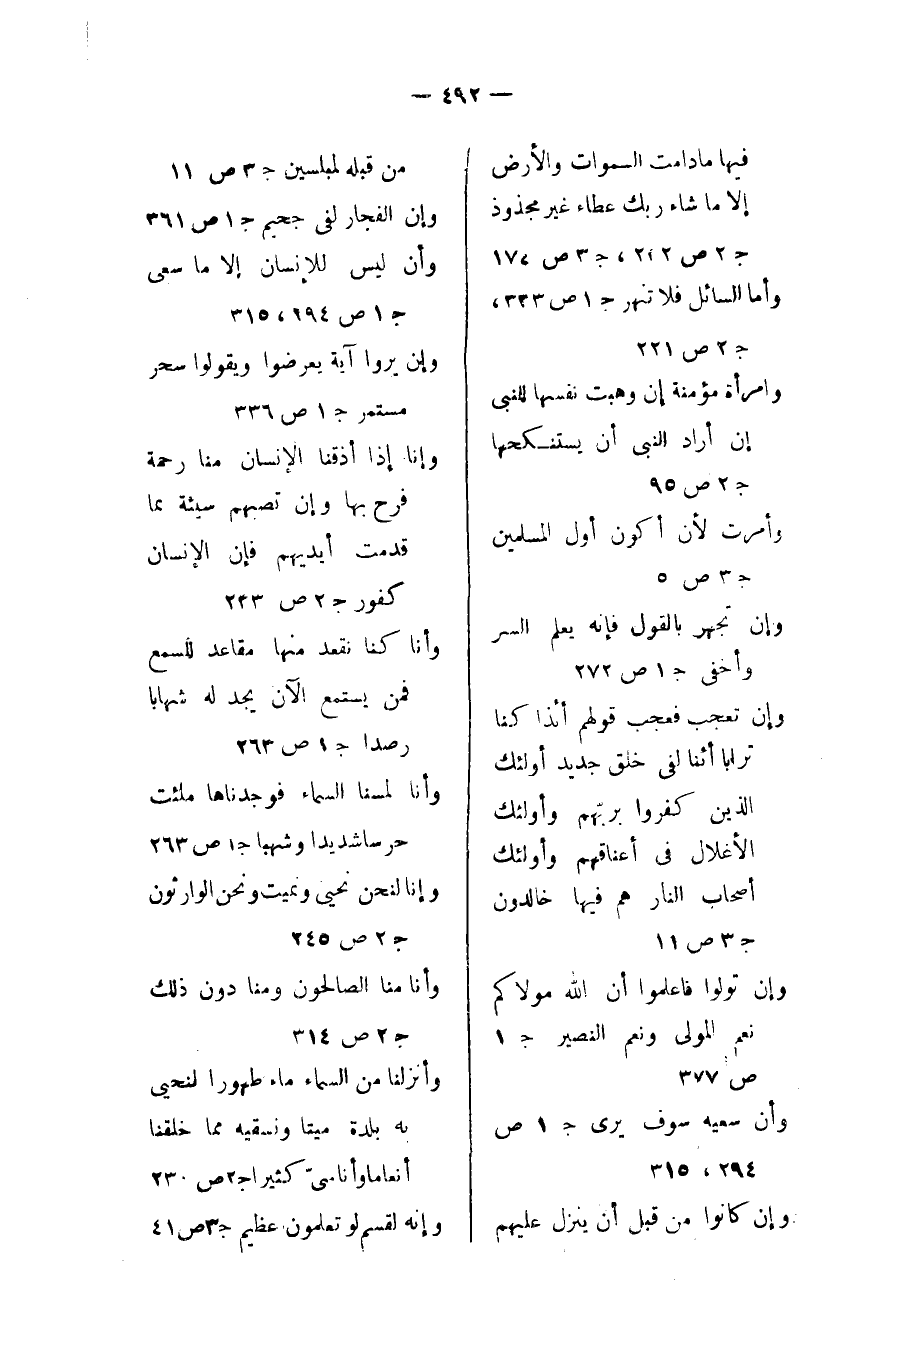 — ٤٩٢ —
فيها مادامت السموات والأرض
إلا ما شاء ربك عطاء غير مجذوذ
ج ٢ ص ٢٤٢ ، ج ٣ ص ١٧٤
وأما السائل فلا تنهر ج ١ ص ٣٣٣ ،
ج ٢ ص ٢٢١
وامرأة مؤمنة إن وهبت نفسها للنبى
إن أراد النبى أن يستنكحها
ج ٢ ص ٩٥
وأمرت لأن أكون أول المسلمين
ج ٣ ص ٥
وإن تجهر بالقول فإنه يعلم السر
وأخفى ج ١ ص ٢٧٢
وإن تعجب فعجب قولهم أئذا كنا
ترابا أئنا لفى خلق جديد أولئك
الذين كفروا بربّهم وأولئك
الأغلال فى أعناقهم وأولئك
أصحاب النار هم فيها خالدون
ج ٣ ص ١١
وإن تولوا فاعلموا أن الله مولاكم
نعم المولى ونعم النصير ج ١
ص ٣٧٧
وأن سعيه سوف يرى ج ١ ص
٢٩٤ ، ٣١٥
وإن كانوا من قبل أن ينزل عليهم
من قبله لمبلسين ج ٣ ص ١١
وإن الفجار لفى جحيم ج ١ ص ٣٦١
وأن ليس للإنسان إلا ما سعى
ج ١ ص ٢٩٤ ، ٣١٥
وإن يروا آية يعرضوا ويقولوا سحر
مستمر ج ١ ص ٣٣٦
وإنا إذا أذقنا الإنسان منا رحمة
فرح بها وإن تصبهم سيئة بما
قدمت أيديهم فإن الإنسان
كفور ج ٢ ص ٢٤٣
وأنا كنا نقعد منها مقاعد للسمع
فمن يستمع الآن يجد له شهابا
رصدا ج ١ ص ٢٦٣
وأنا لمسنا السماء فوجدناها ملئت
حرسا شديدا وشهبا ج١ ص ٢٦٣
وإنا لنحن نحيى ونميت ونحن الوارثون
ج ٢ ص ٢٤٥
وأنا منا الصالحون ومنا دون ذلك
ج ٢ ص ٣١٤
وأنزلنا من السماء ماء طهورا لنحيى
به بلدة ميتا ونسقيه مما خلقنا
أنعاما وأناسىّ كثيرا ج٢ ص ٢٣٠
وإنه لقسم لو تعلمون عظيم ج٣ ص ٤١